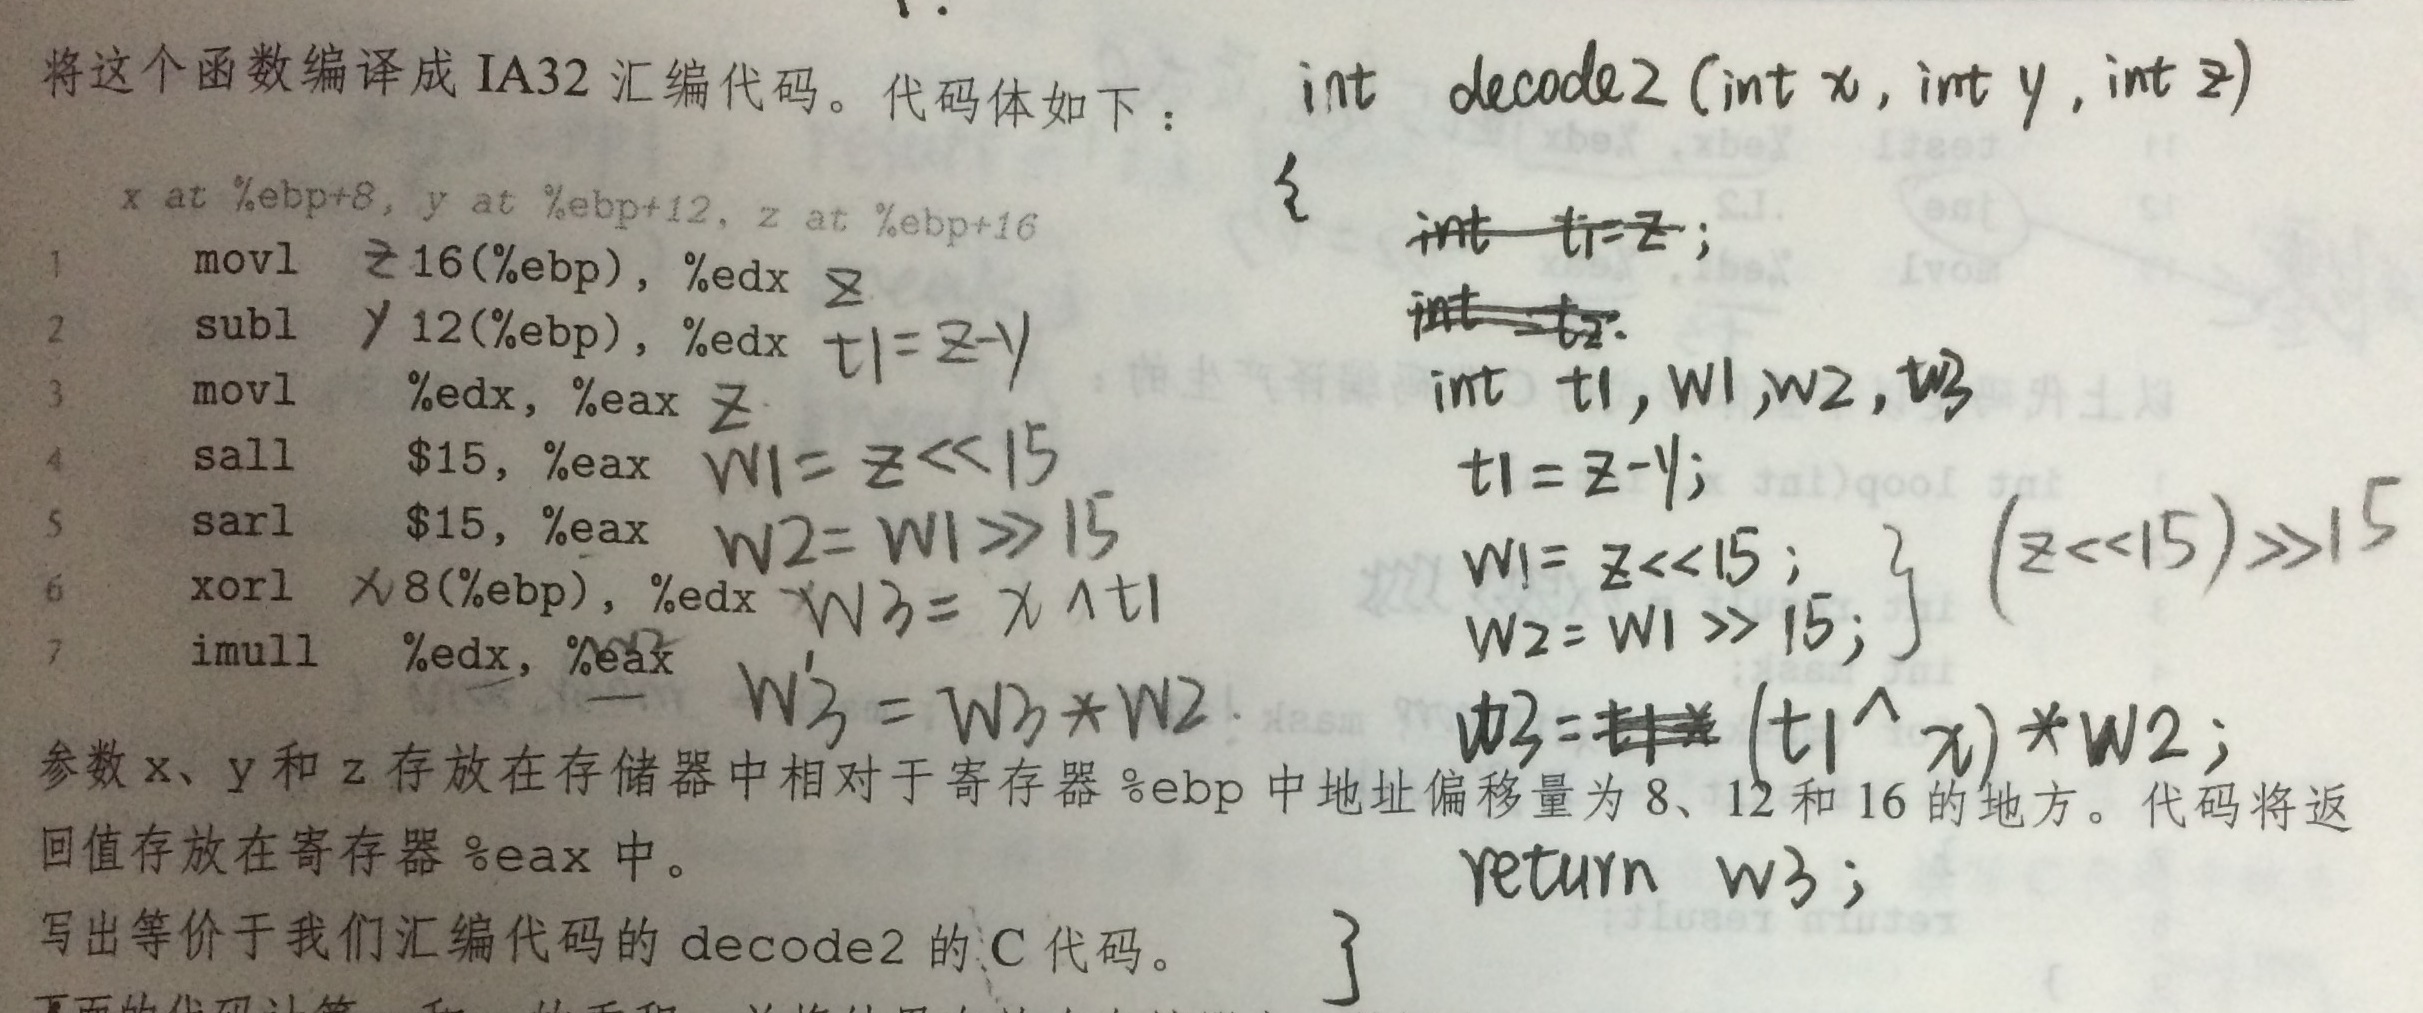 将这个函数编译成 IA32 汇编代码。代码体如下：
x at %ebp+8, y at %ebp+12, z at %ebp+16
1 movl z 16(%ebp), %edx z
2 subl y 12(%ebp), %edx t1=z-y
3 movl %edx, %eax z
4 sall $15, %eax w1=z<<15
5 sarl $15, %eax w2=w1>>15
6 xorl x 8(%ebp), %edx w3=x^t1
7 imull %edx, %eax w'3=w3*w2.
参数 x、y 和 z 存放在存储器中相对于寄存器 %ebp 中地址偏移量为 8、12 和 16 的地方。代码将返
回值存放在寄存器 %eax 中。
写出等价于我们汇编代码的 decode2 的 C 代码。
int decode2(int x, int y, int z)
{
int t1=z;
int t2.
int t1, w1, w2, w3
t1=z-y;
w1=z<<15;
w2=w1>>15;
} (z<<15)>>15
w3=t1* (t1^x)*w2;
return w3;
}